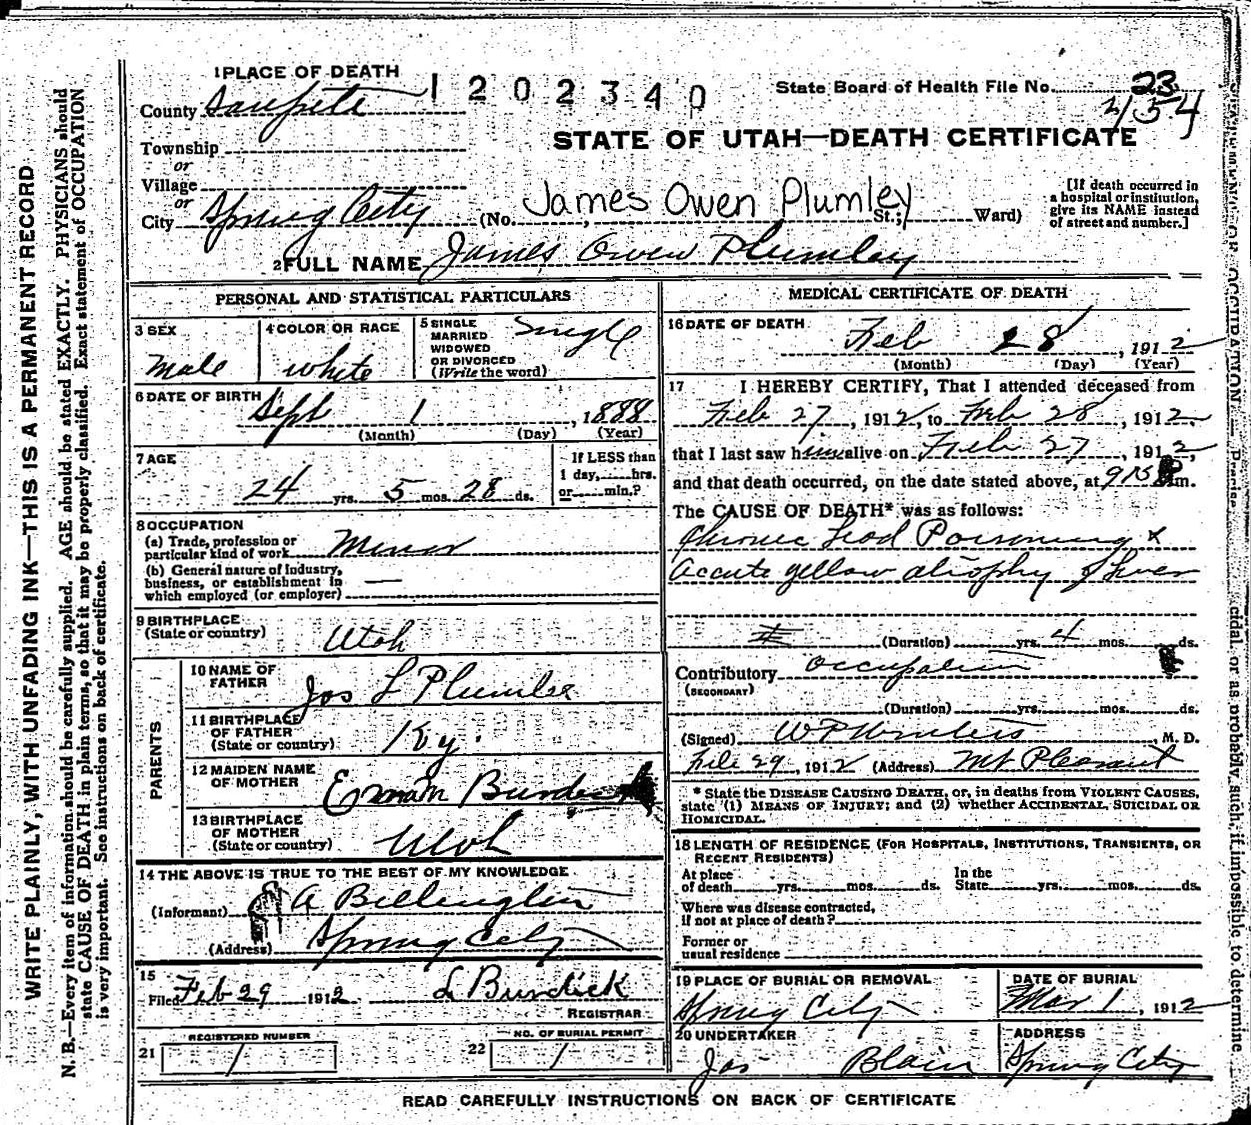 1 PLACE OF DEATH
1202340
State Board of Health File No. 23
2154
County Sanpete
STATE OF UTAH—DEATH CERTIFICATE
Township
or
Village
or
City Spring City (No. James Owen Plumley St.; Ward)
[If death occurred in
a hospital or institution,
give its NAME instead
of street and number.]
2 FULL NAME James Owen Plumley
PERSONAL AND STATISTICAL PARTICULARS
3 SEX
Male
4 COLOR OR RACE
White
5 SINGLE
MARRIED
WIDOWED
OR DIVORCED
(Write the word)
Single
6 DATE OF BIRTH Sept 1, 1888
(Month) (Day) (Year)
7 AGE
24 yrs. 5 mos. 28 ds.
If LESS than
1 day, hrs.
or min.?
8 OCCUPATION
(a) Trade, profession or
particular kind of work Miner
(b) General nature of Industry,
business, or establishment in
which employed (or employer) —
9 BIRTHPLACE
(State or country) Utah
PARENTS
10 NAME OF
FATHER Jos L Plumlee
11 BIRTHPLACE
OF FATHER
(State or country) Ky.
12 MAIDEN NAME
OF MOTHER
13 BIRTHPLACE
OF MOTHER
(State or country) Utah
14 THE ABOVE IS TRUE TO THE BEST OF MY KNOWLEDGE
(Informant) A Billington
(Address) Spring City
15
Filed Feb 29 1912 L Burdick
REGISTRAR
REGISTERED NUMBER
21 1
NO. OF BURIAL PERMIT
22 1
MEDICAL CERTIFICATE OF DEATH
16 DATE OF DEATH
Feb 28, 1912
(Month) (Day) (Year)
17 I HEREBY CERTIFY, That I attended deceased from
Feb 27, 1912, to Feb 28, 1912,
that I last saw him alive on Feb 27, 1912,
and that death occurred, on the date stated above, at 915 m.
The CAUSE OF DEATH* was as follows:
Chronic Lead Poisoning x
Accute yellow atrophy of liver
(Duration) yrs. 4 mos. ds.
Contributory occupation
(SECONDARY)
(Duration) yrs. mos. ds.
(Signed) W P Winters, M. D.
Feb 29, 1912 (Address) Mt Pleasant
* State the DISEASE CAUSING DEATH, or, in deaths from VIOLENT CAUSES,
state (1) MEANS OF INJURY; and (2) whether ACCIDENTAL, SUICIDAL OR
HOMICIDAL.
18 LENGTH OF RESIDENCE (FOR HOSPITALS, INSTITUTIONS, TRANSIENTS, OR
RECENT RESIDENTS)
At place
of death yrs. mos. ds.
In the
State yrs. mos. ds.
Where was disease contracted,
if not at place of death?
Former or
usual residence
19 PLACE OF BURIAL OR REMOVAL
Spring City
DATE OF BURIAL
Mar 1, 1912
20 UNDERTAKER
Jos Blain
ADDRESS
Spring City
READ CAREFULLY INSTRUCTIONS ON BACK OF CERTIFICATE
WRITE PLAINLY, WITH UNFADING INK—THIS IS A PERMANENT RECORD
N. B.—Every item of information should be carefully supplied. AGE should be stated EXACTLY. PHYSICIANS should
state CAUSE OF DEATH in plain terms, so that it may be properly classified. Exact statement of OCCUPATION
is very important. See instructions on back of certificate.
cidal, or as probably such, if impossible to determine